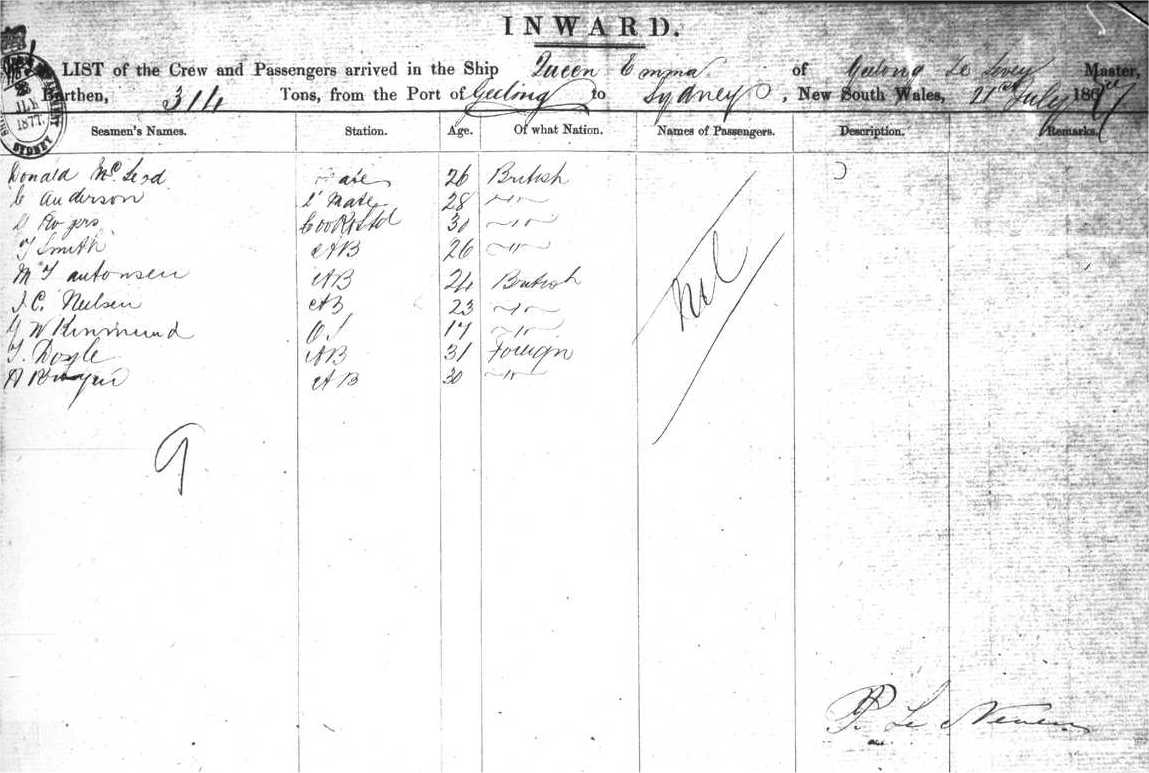 INWARD.
LIST of the Crew and Passengers arrived in the Ship Queen Emma of Geelong Master,
Burthen, 314 Tons, from the Port of Geelong to Sydney, New South Wales, 21st July 187
1877
SYDNEY
Seamen's Names. Station. Age. Of what Nation. Names of Passengers. Description. Remarks.
Donald McLeod Mate 26 British
C Anderson 2 Mate 28 " "
Rogers Cook & Std 30 " "
T Smith AB 26 " "
M T Antonsen AB 24 British
J. C. Neilsen AB 23 " "
G W 17 " "
T. Doyle AB 31 Foreign
AB 30 " "
Nil
9
P. Le